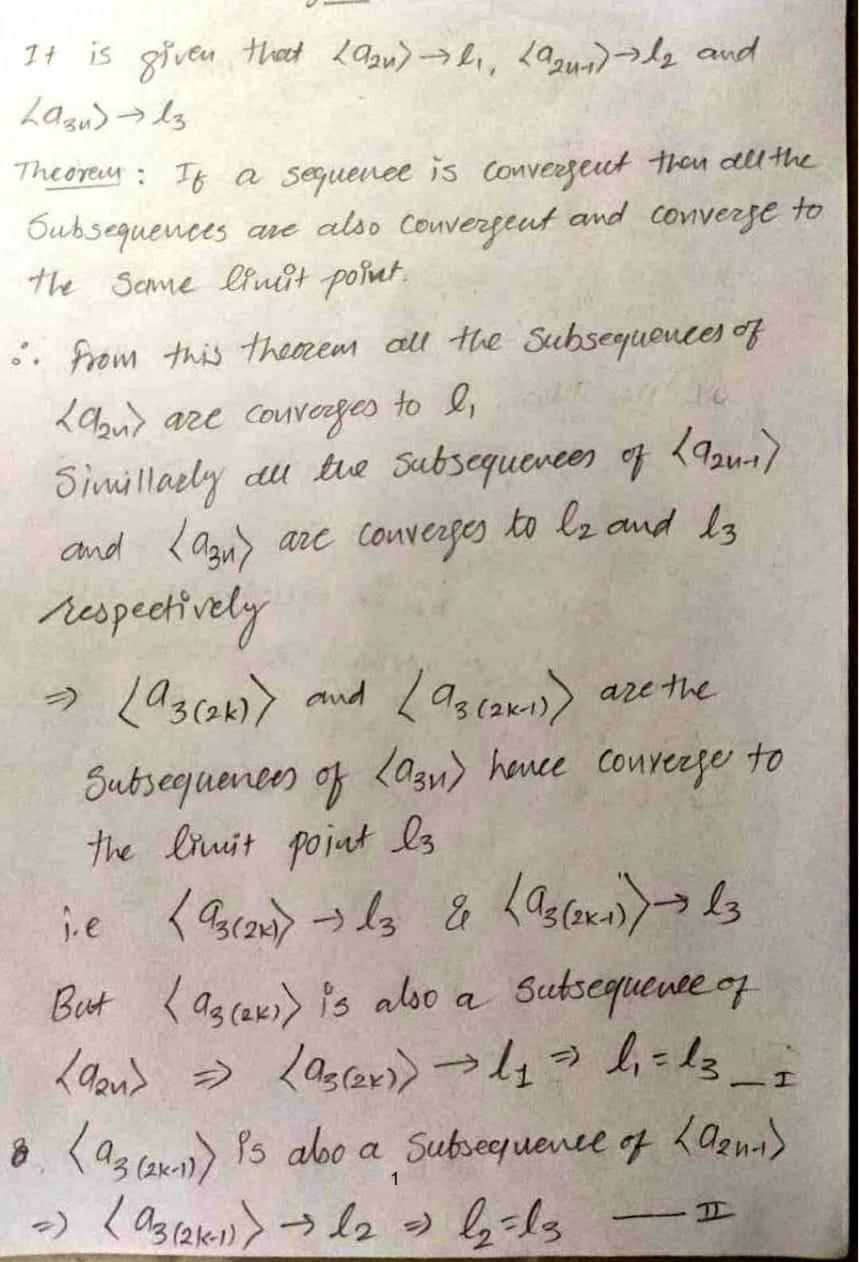 It is given that <a₂ₙ>→l₁, <a₂ₙ₋₁>→l₂ and
<a₃ₙ>→l₃
Theorem : If a sequence is convergent then all the
Subsequences are also convergent and converge to
the same limit point.
∴ from this theorem all the subsequences of
<a₂ₙ> are converges to l₁
Simillarly all the subsequences of <a₂ₙ₋₁>
and <a₃ₙ> are converges to l₂ and l₃
respectively
⇒ <a₃₍₂ₖ₎> and <a₃₍₂ₖ₋₁₎> are the
Subsequences of <a₃ₙ> hence converge to
the limit point l₃
i.e <a₃₍₂ₖ₎> → l₃ & <a₃₍₂ₖ₋₁₎> → l₃
But <a₃₍₂ₖ₎> is also a subsequence of
<a₂ₙ> ⇒ <a₃₍₂ₖ₎> → l₁ ⇒ l₁ = l₃ — I
&. <a₃₍₂ₖ₋₁₎> is also a subsequence of <a₂ₙ₋₁>
1
⇒ <a₃₍₂ₖ₋₁₎> → l₂ ⇒ l₂ = l₃ — II